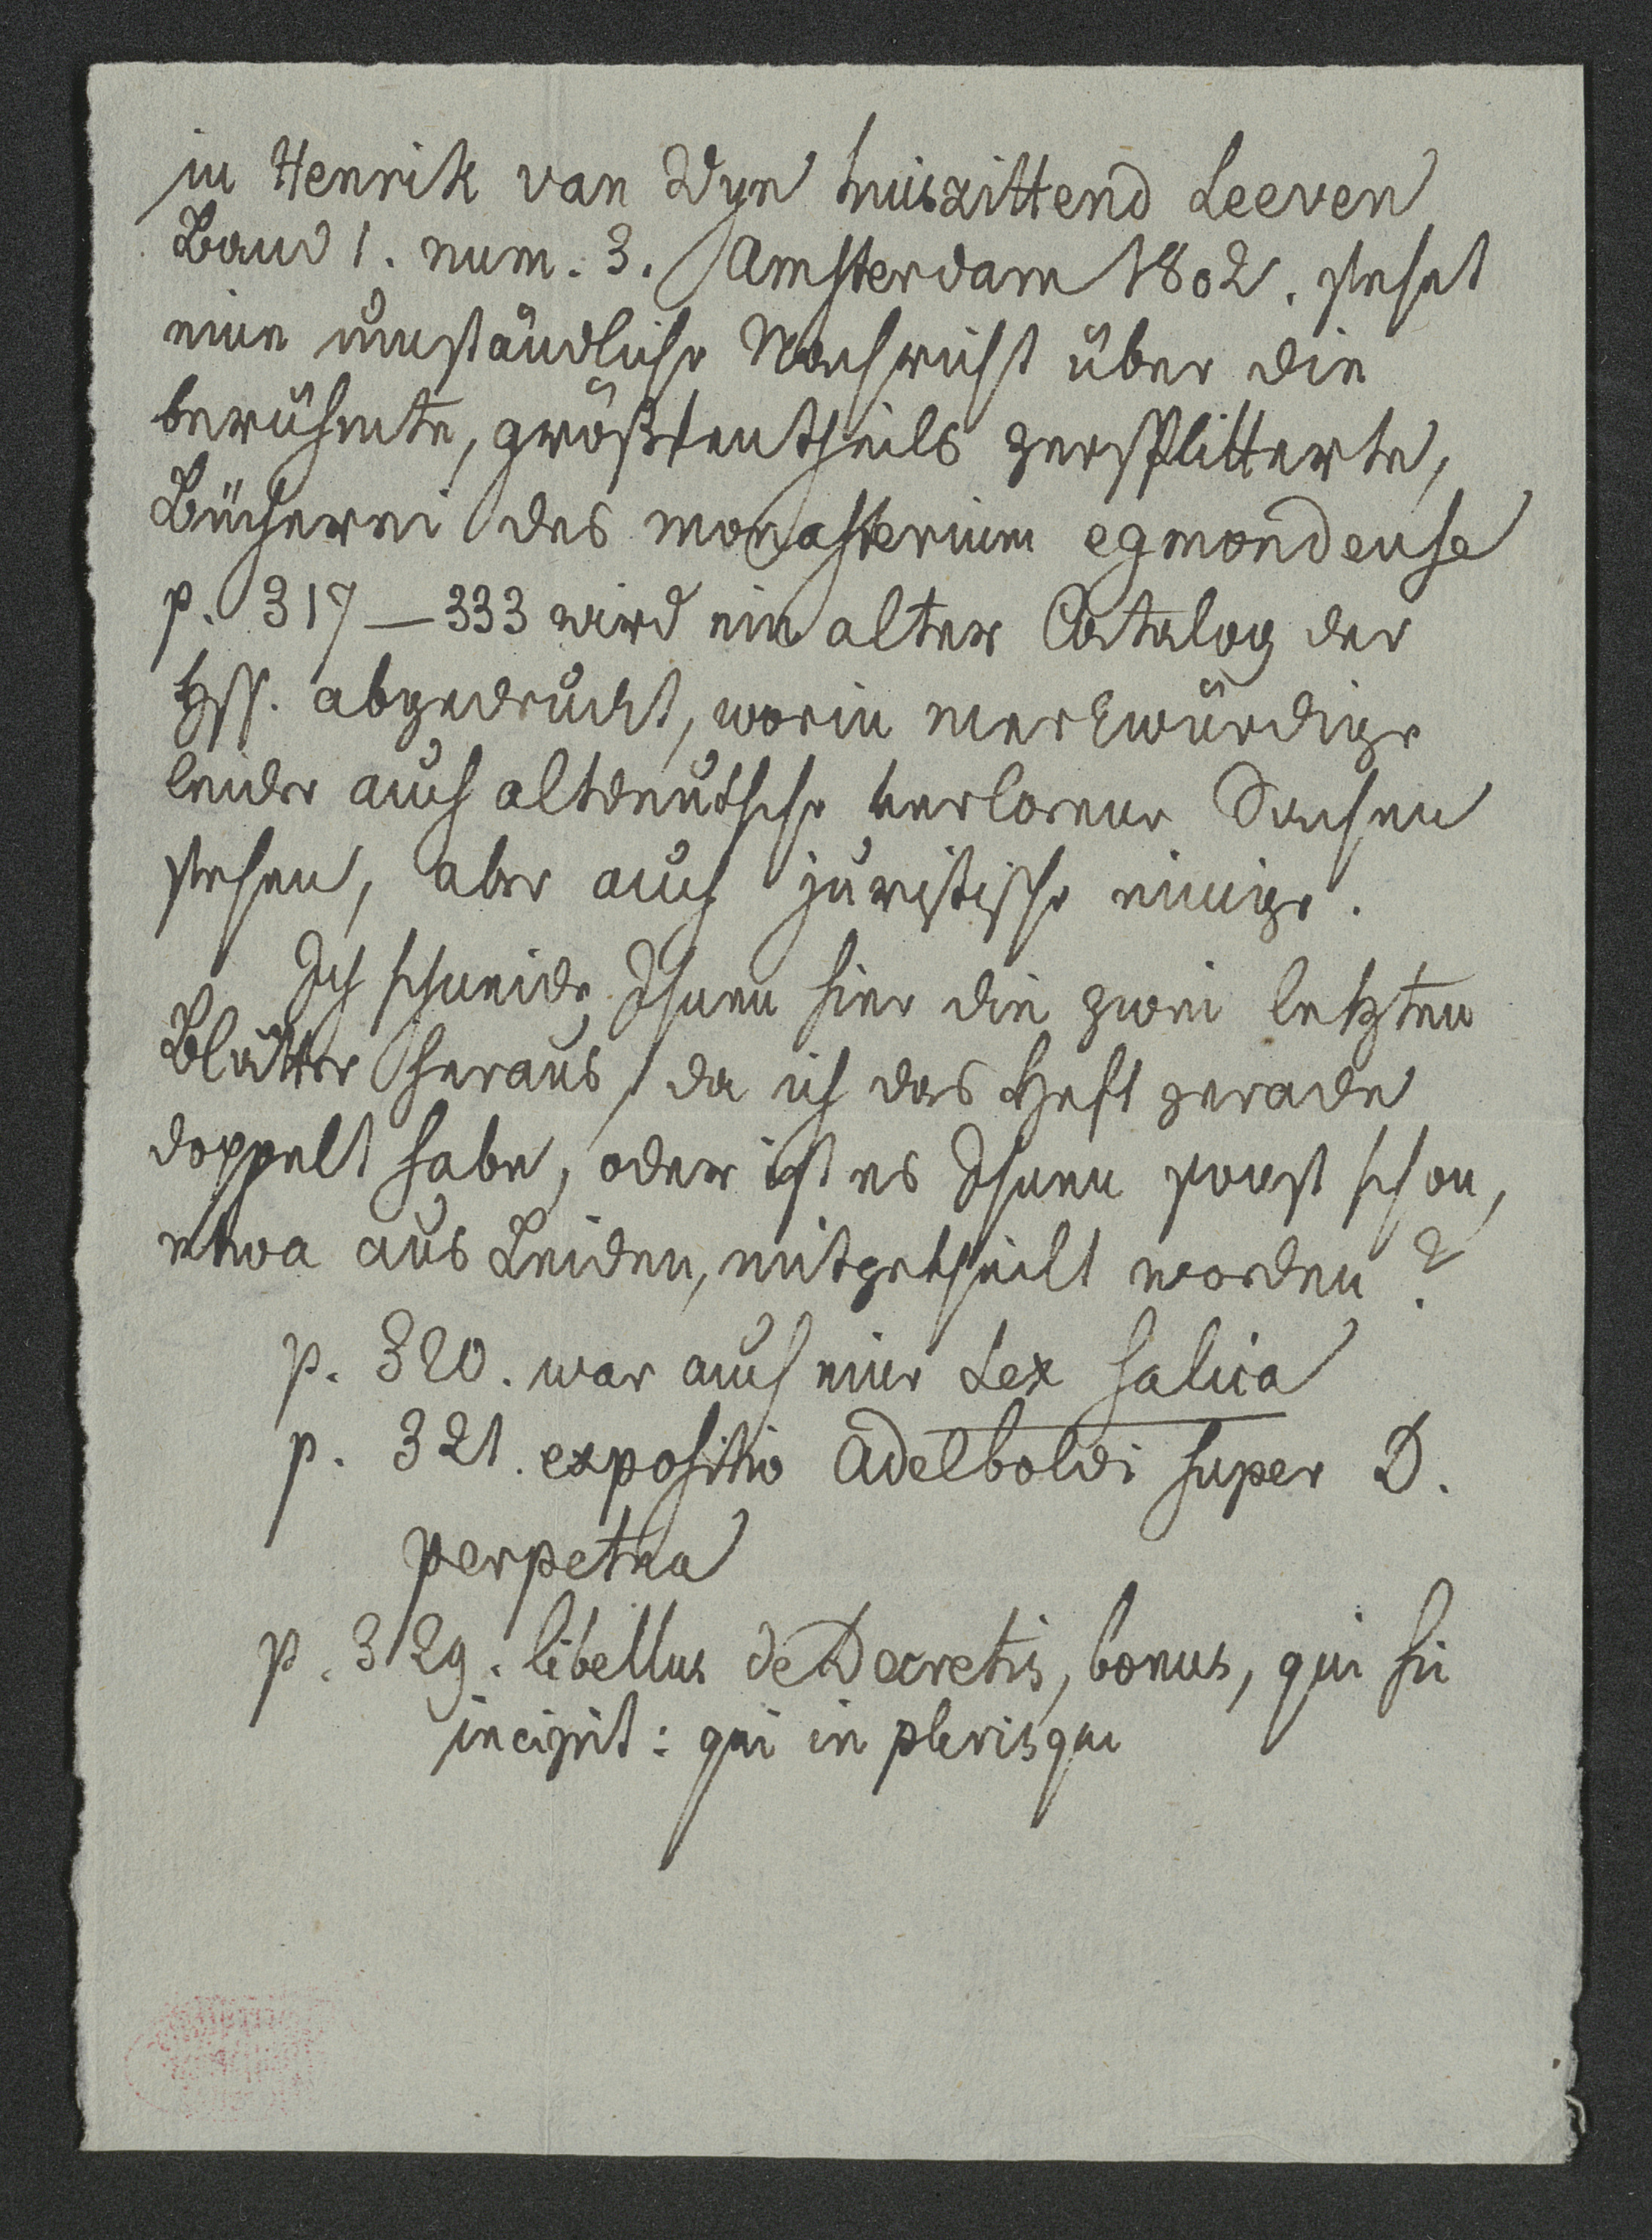 in Henrik van Wyn huiszittend Leeven
Band 1. num. 3. Amsterdam 1802. stehet
eine umständliche Nachricht über die
berühmte, größtentheils zersplitterte,
Bücherei des monasterium egmondense
p. 317 — 333 wird ein alter Catalog der
Hss. abgedruckt, worin merkwürdige
leider auch altdeutsche verlorene Sachen
stehen, aber auch juristische einige.
Ich schneide Ihnen hier die zwei letzten
Blätter heraus, da ich das Heft gerade
doppelt habe, oder ist es Ihnen sonst schon,
etwa aus Leiden, mitgetheilt worden?
p. 320. war auch eine Lex salica
p. 321. expositio Adelboldi super D.
perpetua
p. 329. libellus de Decretis, bonus, qui sic
incipit: qui in plerisque